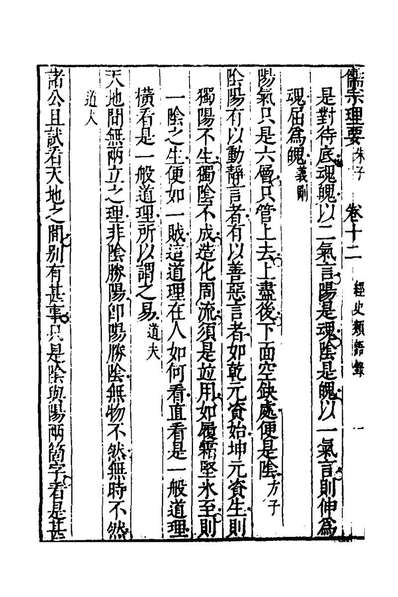 儒宗理要 朱子 卷十二 經史類語錄 一
是對待底魂魄以二氣言陽是魂陰是魄以一氣言則伸爲
魂屈爲魄義剛
陽氣只是六層只管上去上盡後下面空缺處便是陰方子
陰陽有以動靜言者有以善惡言者如乾元資始坤元資生則
獨陽不生獨陰不成造化周流須是竝用如履霜堅氷至則
一陰之生便如一賊這道理在人如何看直看是一般道理
橫看是一般道理所以謂之易道夫
天地間無兩立之理非陰勝陽卽陽勝陰無物不然無時不然
道夫
諸公且試看天地之間別有甚事只是陰與陽兩箇字看是甚